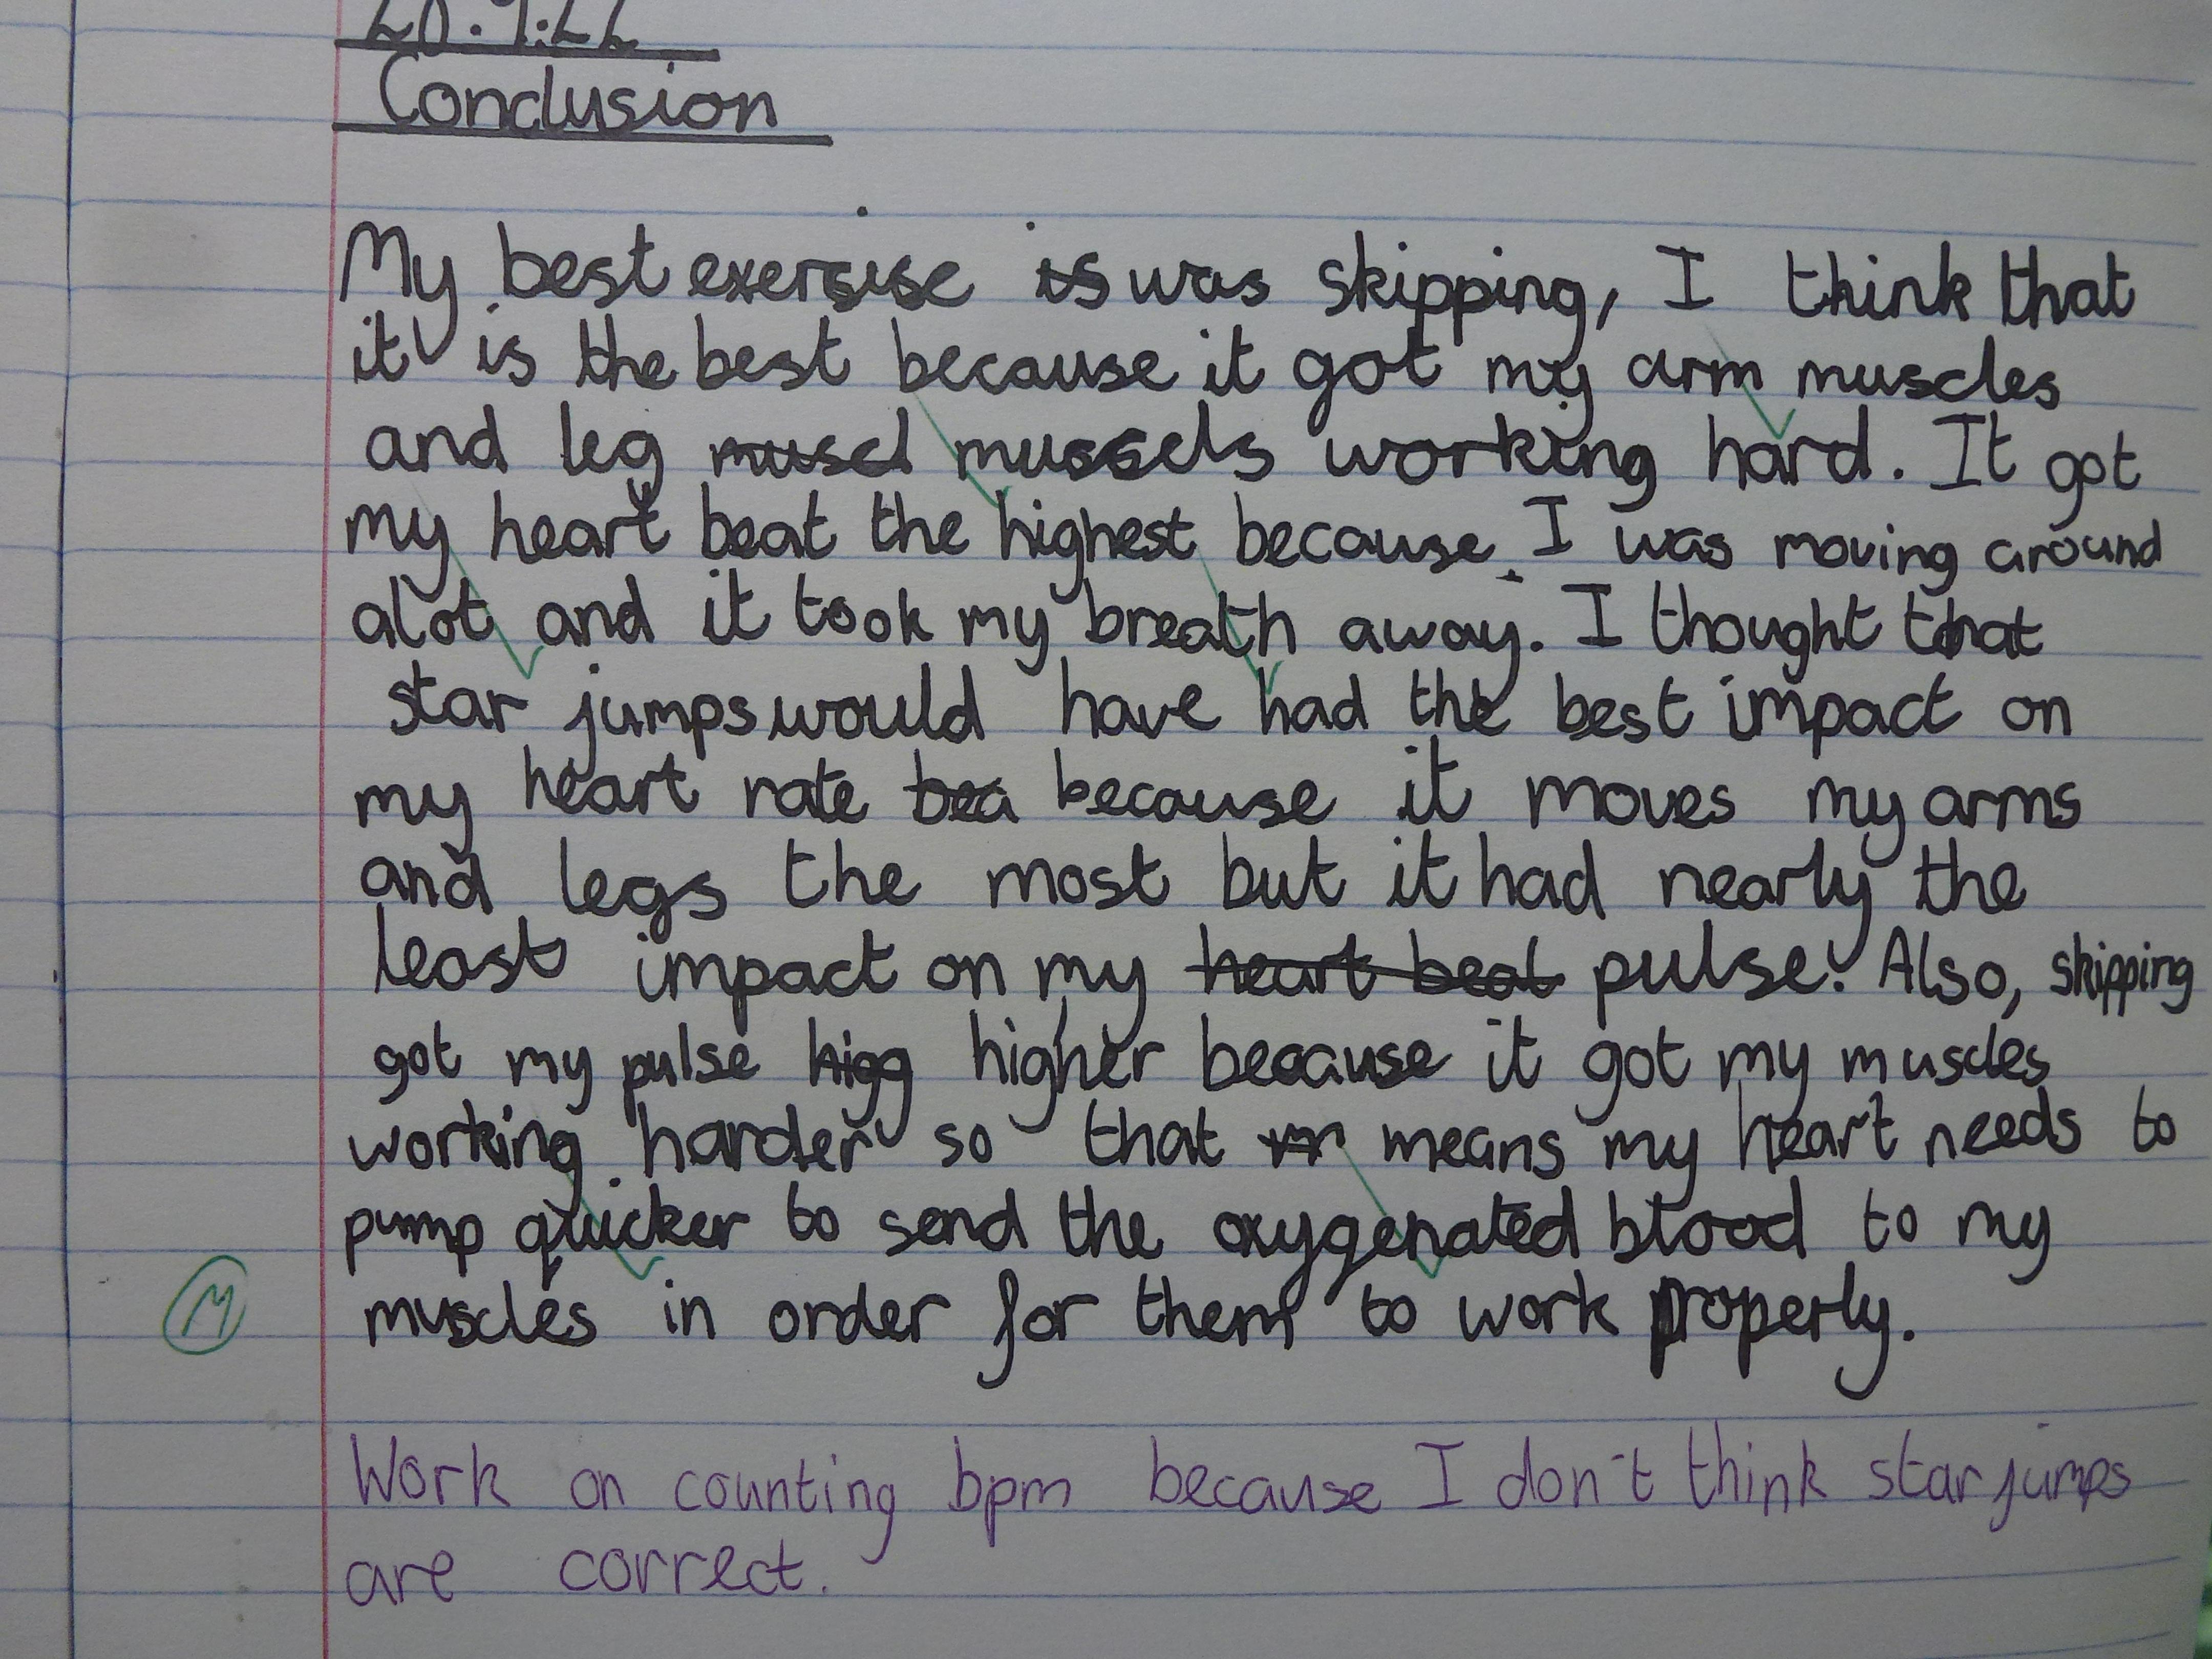 Conclusion
My best exersise is was skipping, I think that
it is the best because it got my arm muscles
and leg muscl mussels working hard. It got
my heart beat the highest because I was moving around
alot and it took my breath away. I thought that
star jumps would have had the best impact on
my heart rate bea because it moves my arms
and legs the most but it had nearly the
least impact on my heart beat pulse. Also, skipping
got my pulse higg higher because it got my muscles
working harder so that means my heart needs to
pump quicker to send the oxygenated blood to my
M
muscles in order for them to work properly.
Work on counting bpm because I don't think star jumps
are correct.